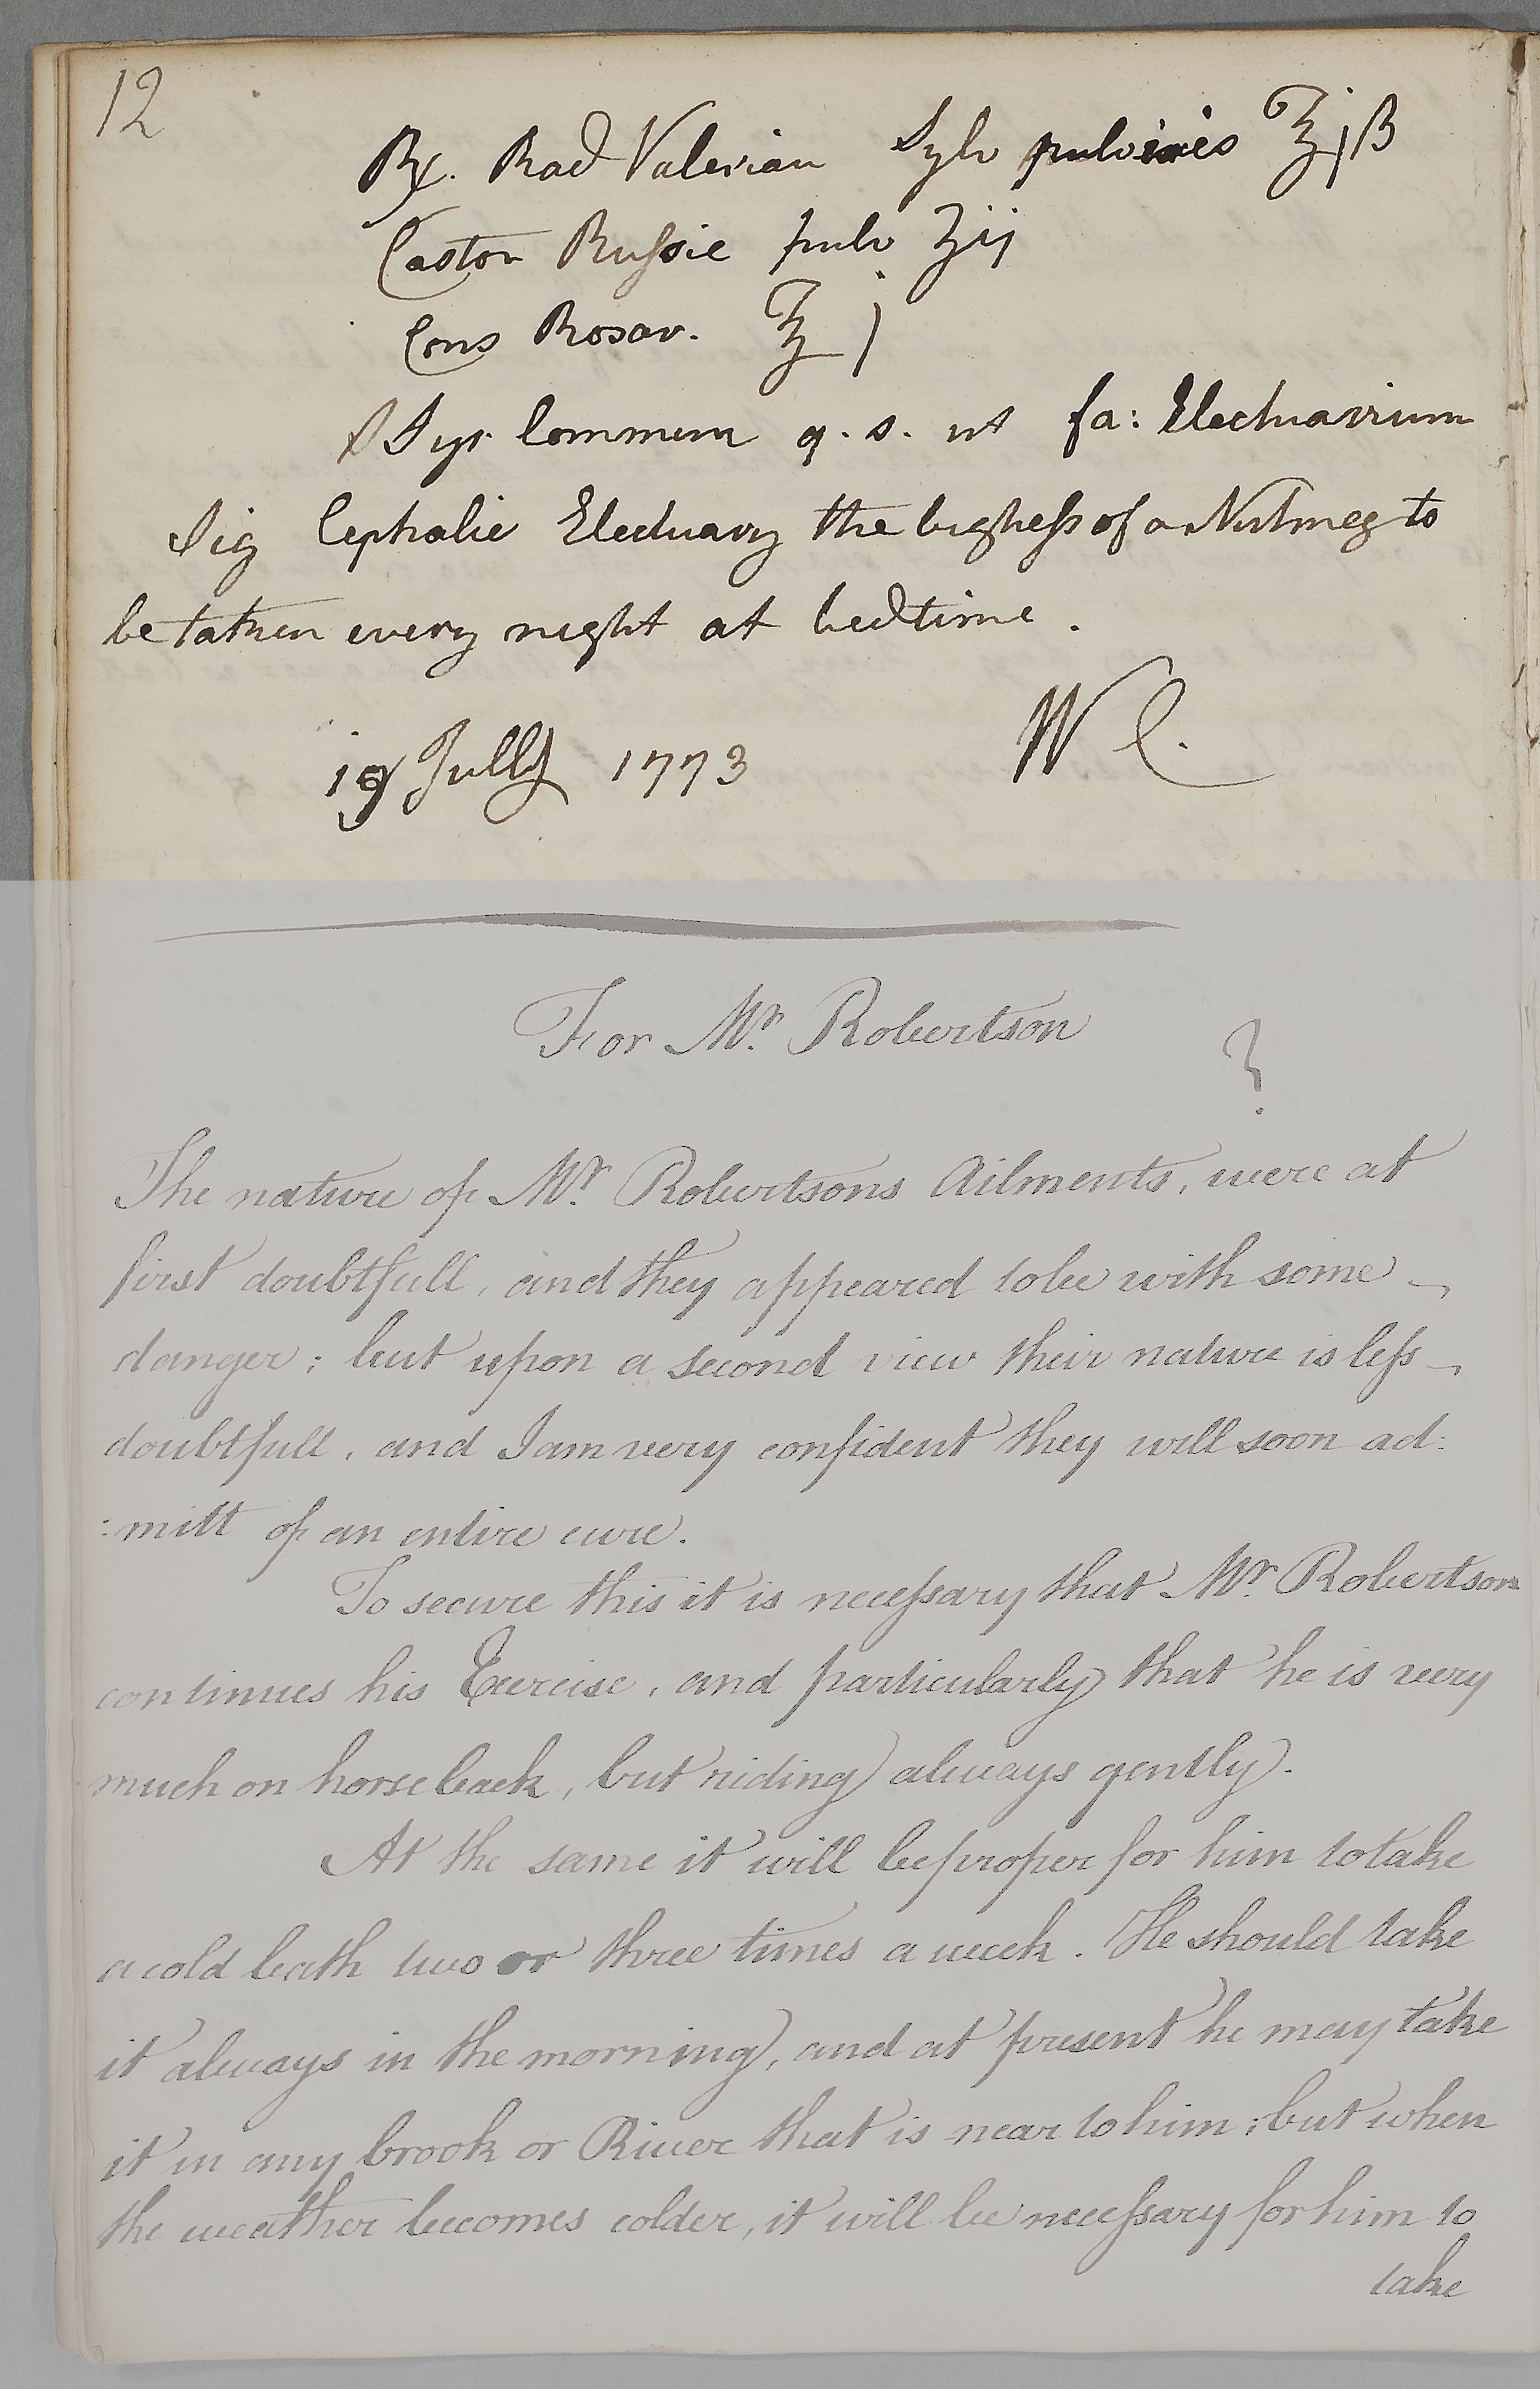 12
℞. Rad Valerian Sylv pulveris ℥jß
Castor Russie pulv ʒij
Cons Rosar. ℥j
Syr. Commun q. s. ut fa: Electuarium
Sig Cephalic Electuary the bigness of a Nutmeg to
be taken every night at bedtime.
19 Jully 1773 W C.
For Mr. Robertson
?
The nature of Mr. Robertsons Ailments, were at
first doubtfull, and they appeared to be with some
danger; but upon a second view their nature is less
doubtfull, and I am very confident they will soon ad:
:mitt of an entire cure.
To secure this it is necessary that Mr. Robertson
continues his Exercise, and particularly that he is very
much on horseback, but riding always gently.
At the same it will be proper for him to take
a cold bath two or three times a week. He should take
it always in the morning, and at present he may take
it in any brook or River that is near to him; but when
the weather becomes colder, it will be necessary for him to
take